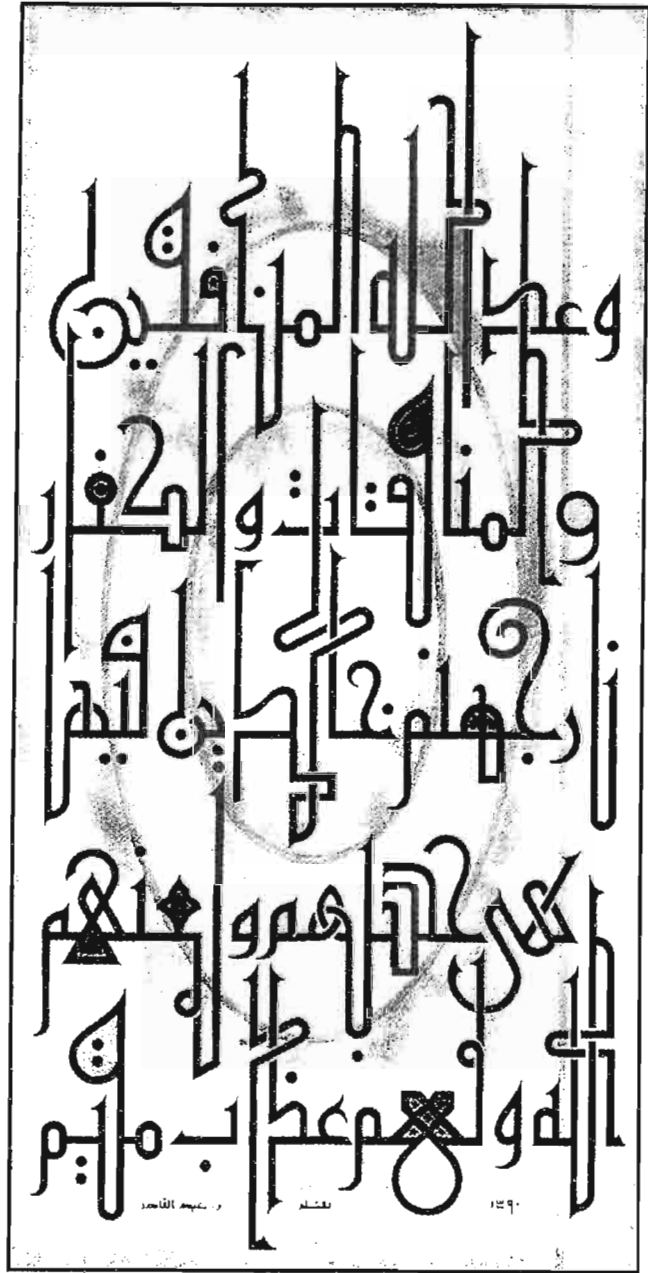 وعد الله المنافقين
والمنافقات والكفار
نار جهنم خالدين فيها
هي حسبهم ولعنهم
الله ولهم عذاب مقيم
١٣٩٠ بقلم